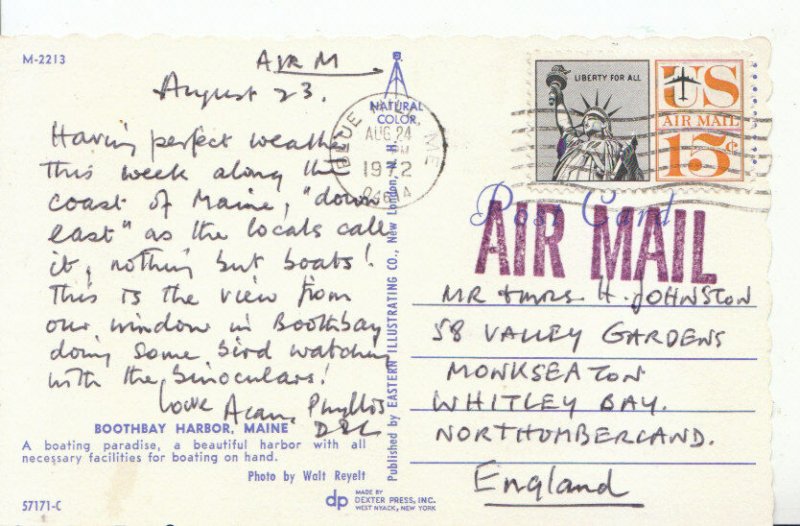 M-2213
AIR M
August 23.
Having perfect weather
this week along the
coast of Maine, "down
east" as the locals call
it, nothing but boats!
This is the view from
our window in Boothbay
doing some bird watching
with the binoculars!
Love Alan, Phyllis
BOOTHBAY HARBOR, MAINE
A boating paradise, a beautiful harbor with all
necessary facilities for boating on hand.
Photo by Walt Reyelt
57171-C
NATURAL
COLOR
BLUE ME
AUG 24
1972
Published by EASTERN ILLUSTRATING CO., New London, N. H.
dp
MADE BY
DEXTER PRESS, INC.
WEST NYACK, NEW YORK
LIBERTY FOR ALL
US
AIR MAIL
15¢
Post Card
AIR MAIL
MR & MRS. H. JOHNSTON
58 VALLEY GARDENS
MONKSEATON
WHITLEY BAY.
NORTHUMBERLAND.
England